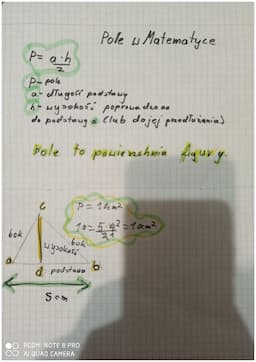 Pole w Matematyce
P = a·h
2
P - pole
a - długość podstawy
h - wysokość poprowadzona
do podstawy a (lub do jej przedłużenia)
Pole to powierzchnia figury.
c
P = 10cm²
bok
wysokość
bok
a
d
podstawa
b
5cm
REDMI NOTE 8 PRO
AI QUAD CAMERA